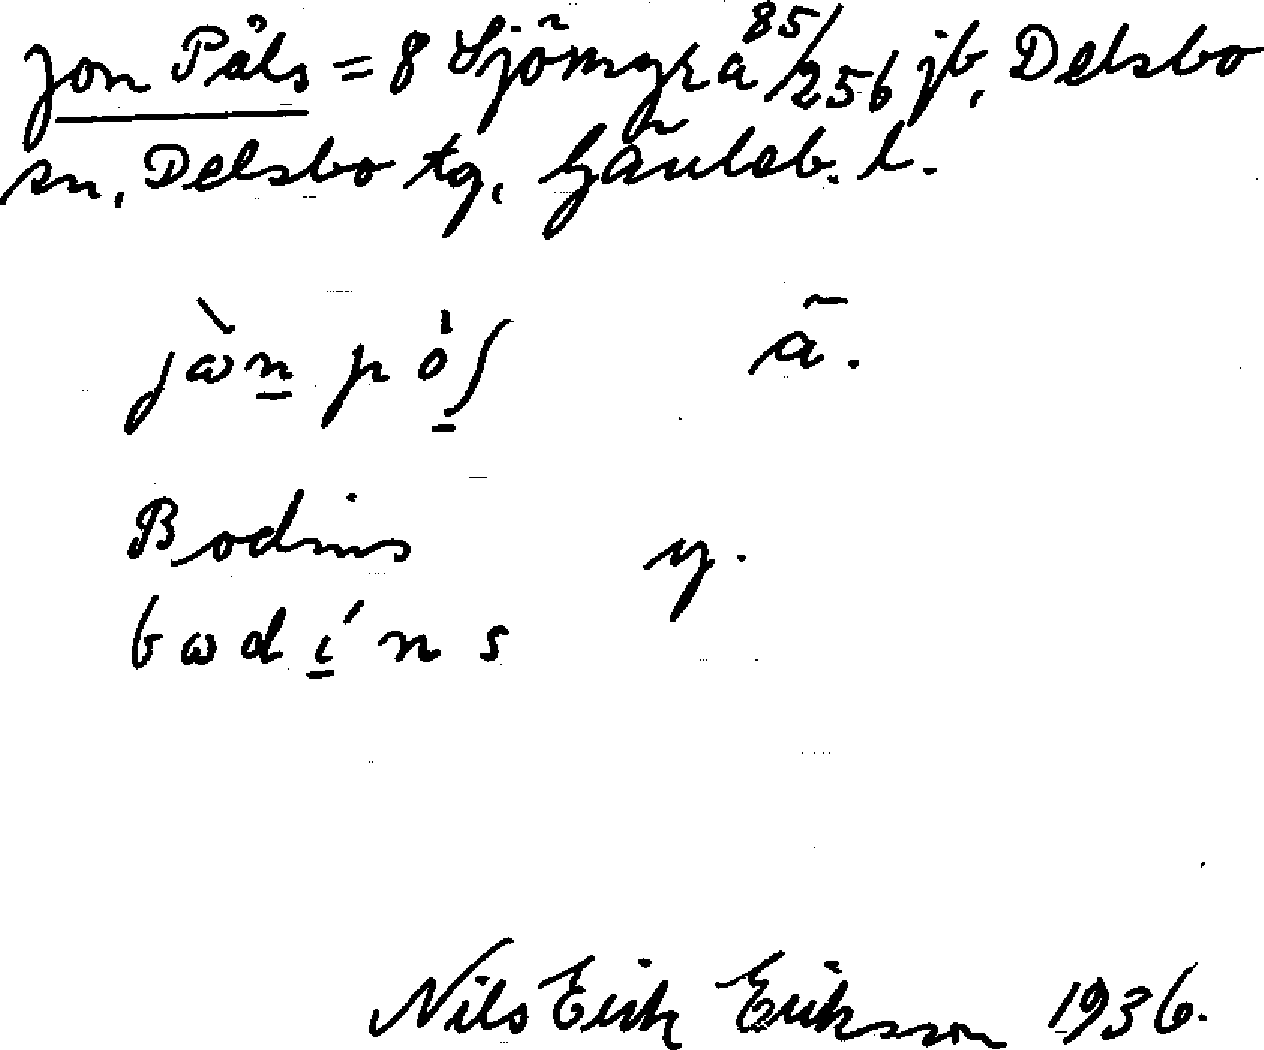 Jon Påls = 8 Sjömyra 85/256 jb, Delsbo
sn, Delsbo tg, Gävleb. l.
jὼn pó̱ʃ ä.
Bodins y.
bωdí̱ns
Nils Erik Eriksson 1936.